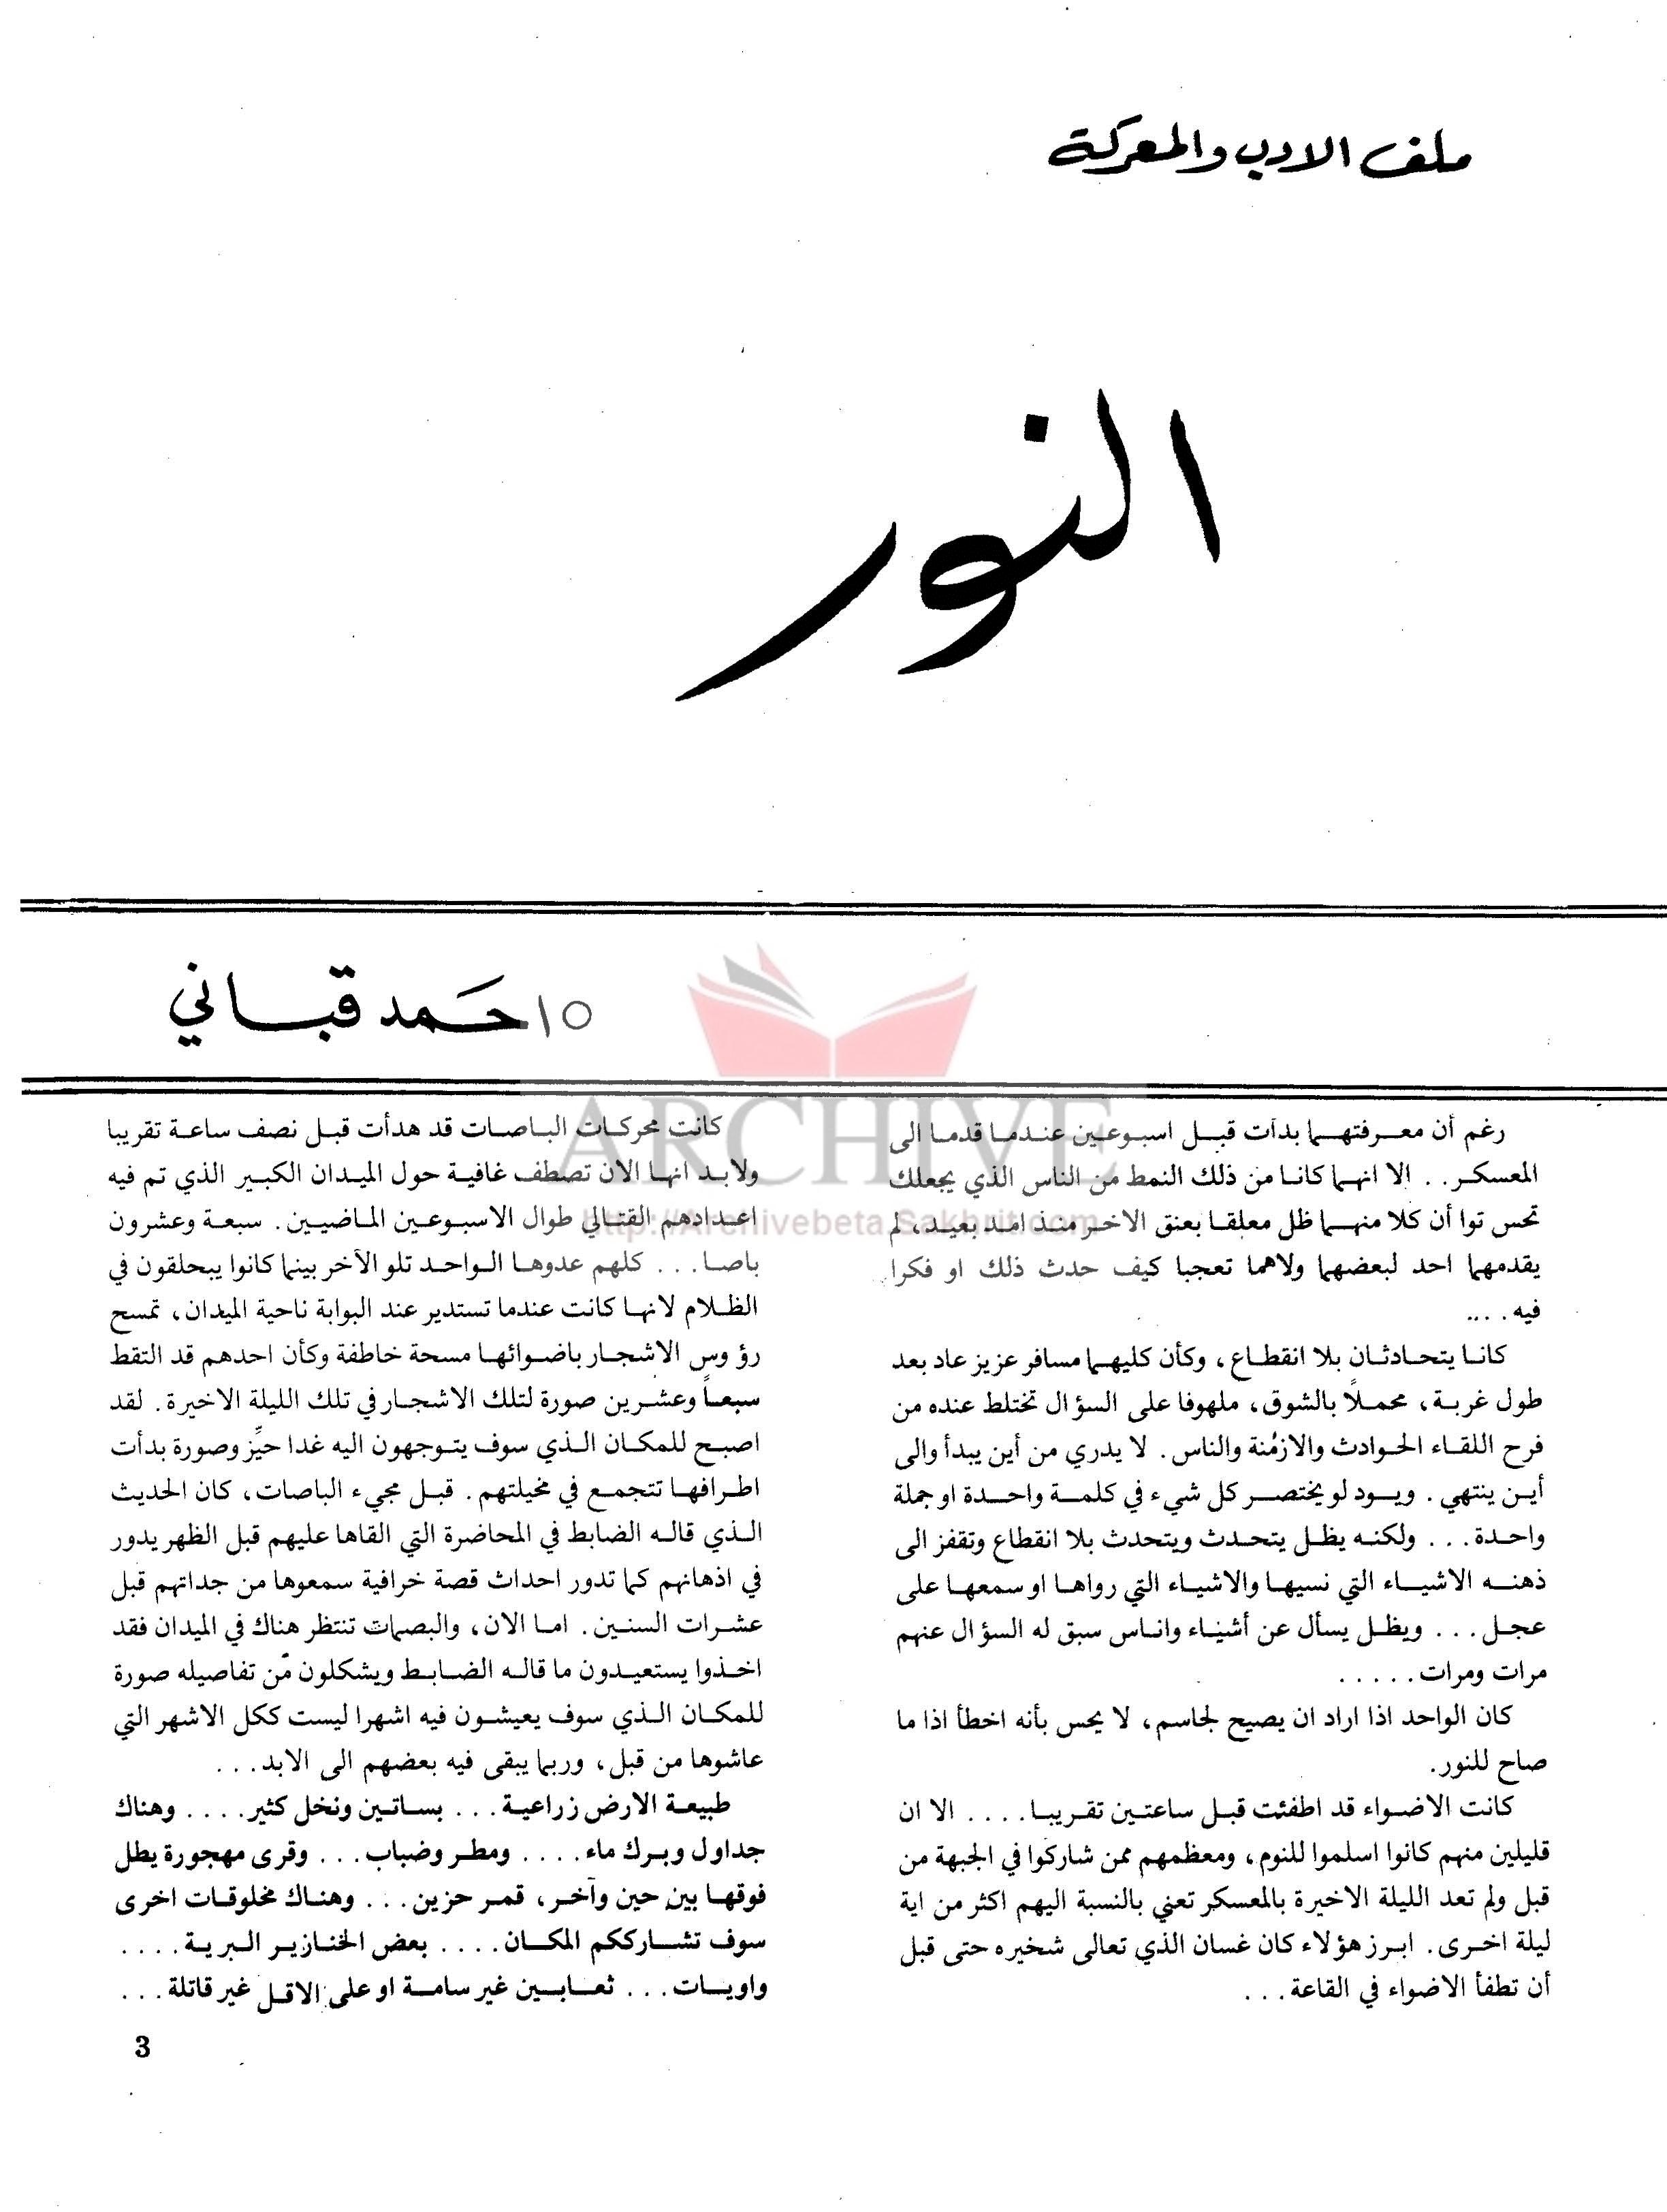 ملف الادب والمعركة
النور
○ احمد قباني
ARCHIVE
http://Archivebeta.Sakhrit.com
رغم أن معرفتهما بدأت قبل اسبوعين عندما قدما الى
المعسكر.. إلا انهما كانا من ذلك النمط من الناس الذي يجعلك
تحس توا أن كلا منهما ظل معلقا بعنق الاخر منذ امد بعيد، لم
يقدمهما احد لبعضهما ولاهما تعجبا كيف حدث ذلك او فكرا
فيه....
كانا يتحادثان بلا انقطاع، وكأن كليهما مسافر عزيز عاد بعد
طول غربة، محملاً بالشوق، ملهوفا على السؤال تختلط عنده من
فرح اللقاء الحوادث والازمُنة والناس. لا يدري من أين يبدأ والى
أين ينتهي. ويود لو يختصر كل شيء في كلمة واحدة او جملة
واحدة... ولكنه يظل يتحدث ويتحدث بلا انقطاع وتقفز الى
ذهنه الاشياء التي نسيها والاشياء التي رواها او سمعها على
عجل... ويظل يسأل عن أشياء واناس سبق له السؤال عنهم
مرات ومرات.....
كان الواحد اذا اراد ان يصيح لجاسم، لا يحس بأنه اخطأ اذا ما
صاح للنور.
كانت الاضواء قد اطفئت قبل ساعتين تقريبا.... الا ان
قليلين منهم كانوا اسلموا للنوم، ومعظمهم ممن شاركوا في الجبهة من
قبل ولم تعد الليلة الاخيرة بالمعسكر تعني بالنسبة اليهم اكثر من اية
ليلة اخرى. ابرز هؤلاء كان غسان الذي تعالى شخيره حتى قبل
أن تطفأ الاضواء في القاعة...
كانت محركات الباصات قد هدأت قبل نصف ساعة تقريبا
ولابد انها الان تصطف غافية حول الميدان الكبير الذي تم فيه
اعدادهم القتالي طوال الاسبوعين الماضيين. سبعة وعشرون
باصا... كلهم عدوها الواحد تلو الآخر بينما كانوا يبحلقون في
الظلام لانها كانت عندما تستدير عند البوابة ناحية الميدان، تمسح
رؤوس الاشجار باضوائها مسحة خاطفة وكأن احدهم قد التقط
سبعاً وعشرين صورة لتلك الاشجار في تلك الليلة الاخيرة. لقد
اصبح للمكان الذي سوف يتوجهون اليه غدا حيِّز وصورة بدأت
اطرافها تتجمع في مخيلتهم. قبل مجيء الباصات، كان الحديث
الذي قاله الضابط في المحاضرة التي القاها عليهم قبل الظهر يدور
في اذهانهم كما تدور احداث قصة خرافية سمعوها من جداتهم قبل
عشرات السنين. اما الان، والبصمات تنتظر هناك في الميدان فقد
اخذوا يستعيدون ما قاله الضابط ويشكلون مّن تفاصيله صورة
للمكان الذي سوف يعيشون فيه اشهرا ليست ككل الاشهر التي
عاشوها من قبل، وربما يبقى فيه بعضهم الى الابد...
طبيعة الارض زراعية... بساتين ونخل كثير.... وهناك
جداول وبرك ماء.... ومطر وضباب... وقرى مهجورة يطل
فوقها بين حين وآخر، قمر حزين... وهناك مخلوقات اخرى
سوف تشارككم المكان.... بعض الخنازير البرية....
واويات... ثعابين غير سامة او على الاقل غير قاتلة...
3